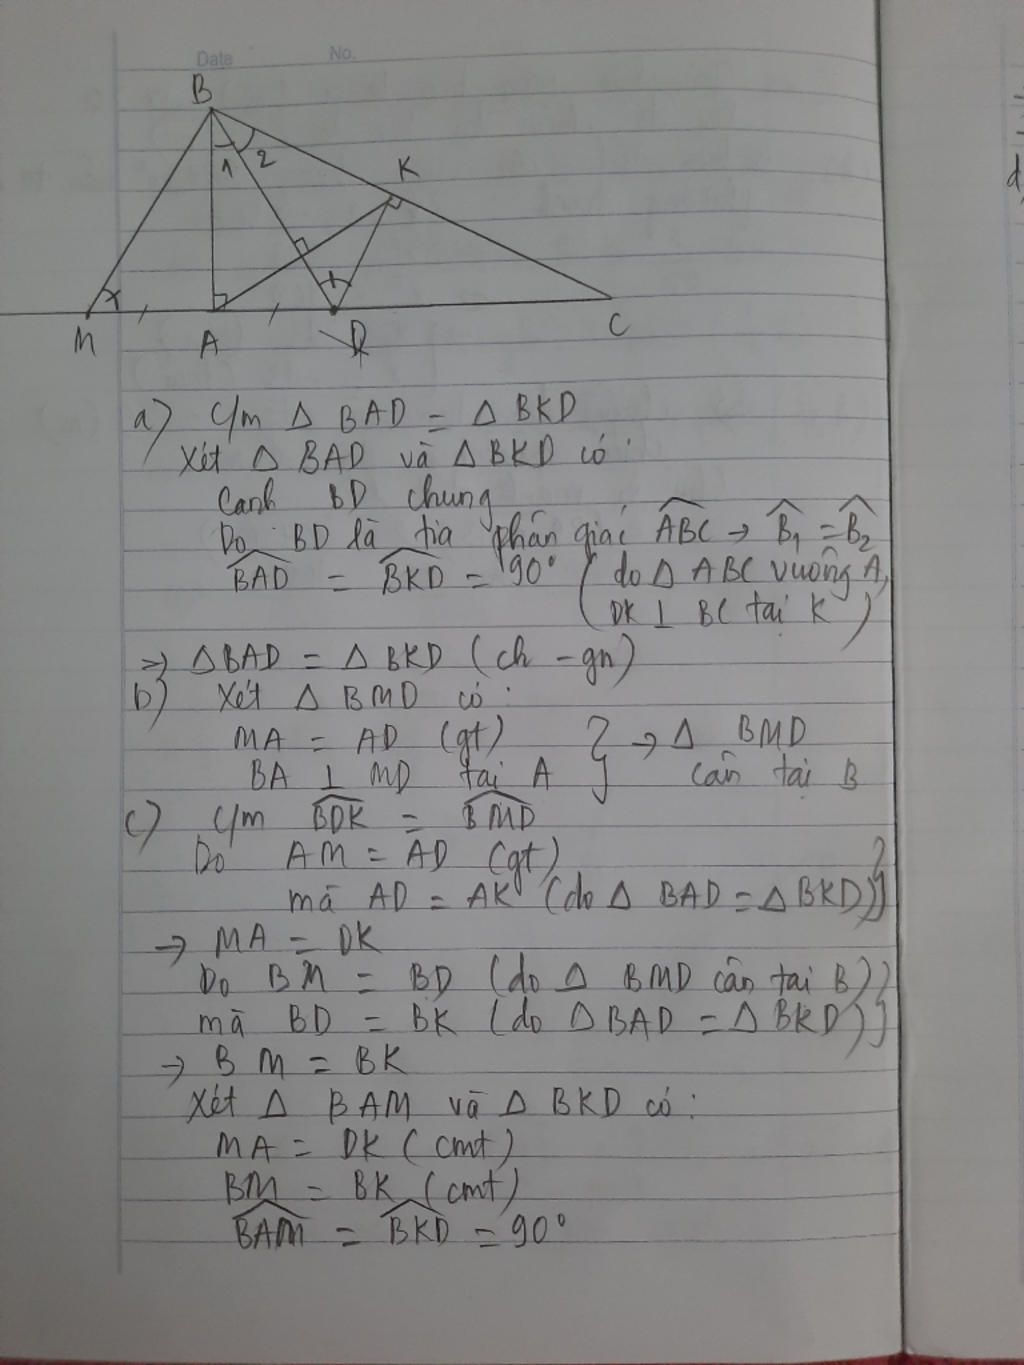 Date No.
B
1 2
K
M A D C
a) C/m Δ BAD = Δ BKD
Xét Δ BAD và Δ BKD có:
Canh BD chung
Do BD là tia phân giác ABC → B1 = B2
BAD = BKD = 90° (do Δ ABC vuông A,
DK ⊥ BC tại K)
=> ΔBAD = Δ BKD (ch - gn)
b) Xét Δ BMD có:
MA = AD (gt) } → Δ BMD
BA ⊥ MD tại A cân tại B
c) C/m BDK = BMD
Do AM = AD (gt)
mà AD = AK (do Δ BAD = Δ BKD) }
→ MA = DK
Do BM = BD (do Δ BMD cân tại B) }
mà BD = BK (do ΔBAD = Δ BKD)
→ BM = BK
Xét Δ BAM và Δ BKD có:
MA = DK (cmt)
BM = BK (cmt)
BAM = BKD = 90°
d